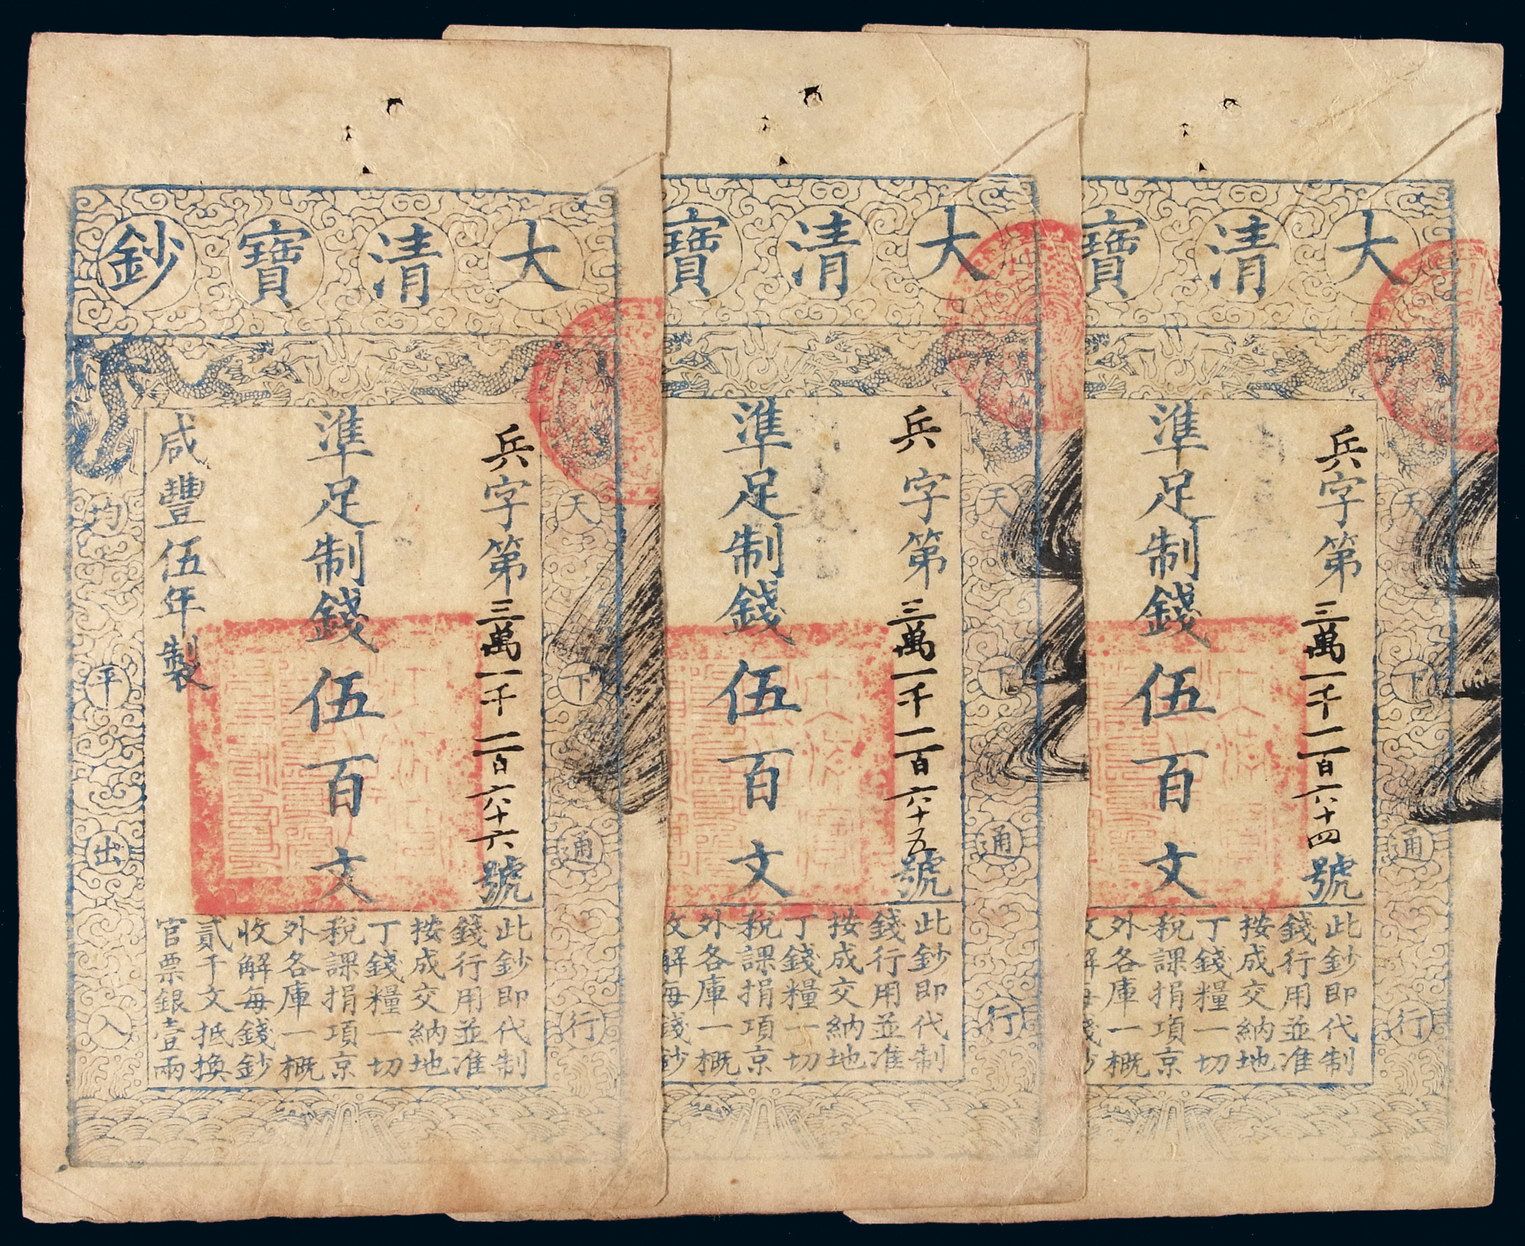 大清寶鈔
天下通行
兵字第三萬一千一百六十六號
準足制錢伍百文
咸豐伍年製
均平出入
此鈔即代制
錢行用並准
按成交納地
丁錢糧一切
稅課捐項京
外各庫一概
收解每錢鈔
貳千文抵換
官票銀壹兩
大清寶
天下通行
兵字第三萬一千一百六十五號
準足制錢伍百文
此鈔即代制
錢行用並准
按成交納地
丁錢糧一切
稅課捐項京
外各庫一概
收解每錢鈔
大清寶
天下通行
兵字第三萬一千一百六十四號
準足制錢伍百文
此鈔即代制
錢行用並准
按成交納地
丁錢糧一切
稅課捐項京
外各庫一概